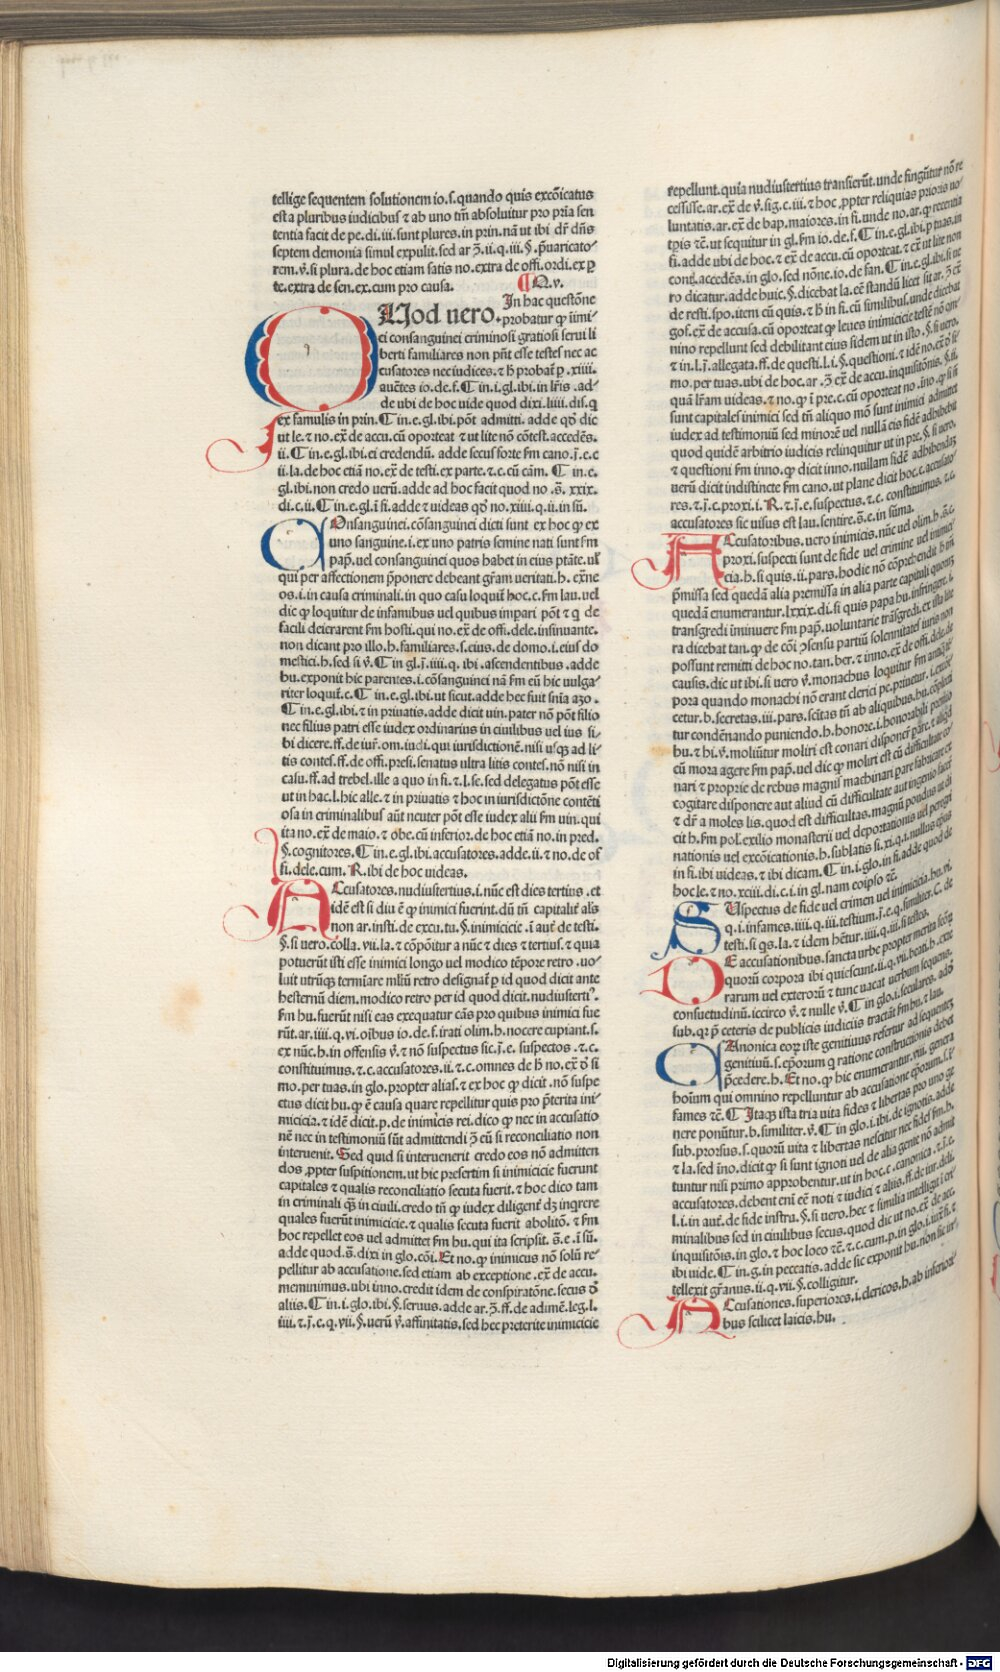 tellige sequentem solutionem io.s.quando quis excōicatus
est a pluribus iudicibus ⁊ ab uno tm̄ absoluitur pro pria sen
tentia facit de pe.di.iii.sunt plures.in prin.nā ut ibi dr̄ dn̄s
septem demonia simul expulit.sed ar ʒ.ii.q.iii.§.p̄uaricato⸗
rem.v̄.si plura.de hoc etiam satis no.extra de offi.ordi.ex ꝑ
te.extra de sen.ex.cum pro causa. ¶Q.v.
QUod uero. In hac questōne
probatur ꝙ īimi
ci consanguinei criminosi gratiosi serui li
berti familiares non pn̄t esse testes nec ac
cusatores nec iudices.⁊ ħ probat̄ ꝑ .xiiii.
auc̄tes io.de.f.¶ in.i.gl.ibi.in lr̄is .ad⸗
de ubi de hoc uide quod dixi.liiii.dis.q
ex famulis in prin.¶ in.e.gl.ibi.pōt admitti. adde qđ dic
ut le.⁊ no.ex̄ de accu.cū oporteat ⁊ ut lite nō cōtest.accedēs.
ii.¶ in.e.gl.ibi.ei credendū. adde secus forte fm cano.j̄.e.c
ii.la.de hoc etiā no.ex̄ de testi.ex parte.⁊.c.cū cām. ¶ in.e.
gl.ibi.non credo uerū.adde ad hoc facit quod no .s̄. xxix.
di.c.ii.¶ in.e.gl.i fi.adde ⁊ uideas qđ no.xiiii.q.ii.in sū.
COnsanguinei.cōsanguinei dicti sunt ex hoc ꝙ ex
uno sanguine.i.ex uno patris semine nati sunt fm
pap̄.uel consanguinei quos habet in eius ptāte.ul̄
qui per affectionem p̄ponere debeant gr̄am ueritati.h. ex̄ne
os.i.in causa criminali.in quo casu loquiī hoc.c.fm lau.uel
dic ꝙ loquitur de infamibus uel quibus impari pōt ⁊ q̄ de
facili deierarent fm hosti.qui no.ex̄ de offi.dele.insinuante.
non dicant pro illo.h.familiares.s.eius.de domo.i.eius do
mestici.h.sed si v̄.¶ in gl.j̄.iiii.q. ibi .ascendentibus .adde
hu.exponit hic parentes.i.cōsanguinei nā fm eū hic uulga⸗
riter loquiī.c.¶ in.e.gl.ibi.ut sicut.adde hec fuit sn̄ia azo .
¶ in.e.gl.ibi.⁊ in priuatis.adde dicit uin.pater nō pōt filio
nec filius patri esse iudex ordinarius in ciuilibus uel ius si⸗
bi dicere.ff.de iur̄.om.iudi.qui iurisdictionē.nisi usq̄ ad li⸗
tis contes.ff.de offi.presi.senatus ultra litis contes.nō nisi in
casu.ff.ad trebel.ille a quo in fi.⁊.l.se.sed delegatus pōt esse
ut in hac.l.hic alle.⁊ in priuatis ⁊ hoc in iurisdictōne contēti
osa in criminalibus aūt neuter pōt esse iudex alii fm uin.qui
ita no.ex̄ de maio.⁊ obe.cū inferior.de hoc etiā no.in pred.
§.cognitores.¶ in.e.gl.ibi.accusatores.adde.ii.⁊ no.de of
fi.dele.cum. R.ibi de hoc uideas.
ACcusatores.nudiustertius.i.nūc est dies tertius .et
idē est si diu ē ꝙ inimici fuerint.dū tn̄ capitalit̄ alś
non ar.insti.de excu.tu.§.inimicicie .ī aut̄ de testi.
§.si uero.colla.vii.la.⁊ cōpōitur a nūc ⁊ dies ⁊ tertius.⁊ quia
potuerūt isti esse inimici longo uel modico tēpore retro .uo⸗
luit utrūq̄ termīare mliū retro designat̄ ꝑ id quod dicit ante
hesternū diem.modico retro per id quod dicit.nudiusterti⁹.
fm hu.fuerūt nisi eas exequatur cās pro quibus inimici fue
rūt.ar.iiii.q.vi.oībus io.de.f.irati olim.h.nocere cupiant.s.
ex nūc.h.in offensis v̄.⁊ nō suspectus sic.j̄.e. suspectos .⁊.c.
constituimus.⁊.c.accusatores.ii.⁊.c.omnes de ħ no.ex̄ ď si
mo.per tuas.in glo.propter alias.⁊ ex hoc ꝙ dicit .nō suspe
ctus dicit hu.ꝙ ē causa quare repellitur quis pro p̄terita ini⸗
micicia.⁊ idē dicit.p.de inimicis rei.dico ꝙ nec in accusatio
nē nec in testimoniū sūt admittendi ʒ cū si reconciliatio non
interuenit. Sed quid si interuenerit credo eos nō admitten
dos .ꝓpter suspitionem.ut hic presertim si inimicicie fuerunt
capitales ⁊ qualis reconciliatio secuta fuerit.⁊ hoc dico tam
in criminali q̄ in ciuili.credo tn̄ ꝙ iudex diligent̄ dʒ inq̄rere
quales fuerūt inimicicie.⁊ qualis secuta fuerit abolitō. ⁊ fm
hoc repellet eos uel admittet fm hu.qui ita scripsit. s̄.e .ī sū.
adde quod.s̄.dixi in glo.cōi. Et no.ꝙ inimicus nō solū re⸗
pellitur ab accusatione.sed etiam ab exceptione .ex̄ de accu.
meminimus.ubi inno.credit idem de conspiratōne.secus ď
aliis.¶ in.i.glo.ibi.§.seruus.adde ar.ʒ.ff.de adimē.leg.l.
iiii.⁊.j̄.e.q.vii.§.uerū v̄.affinitatis.sed hec preterite inimicicie
repellunt.quia nudiustertius transierūt.unde fingūtur nō re
cessisse.ar.ex̄ de v̄.sig.c.iii.⁊ hoc .ꝓpter reliquias prioris uo⸗
luntatis.ar.ex̄ de bap.maiores.in fi.unde no.ar.ꝙ recentia
tp̄is ⁊c̄.ut sequitur in gl.fm io.de.f.¶ in.e.gl.ibi.ꝑ tuas.in
fi.adde ubi de hoc.⁊ ex̄ de accu.cū oporteat.⁊ ex̄ ut lite non
cont̄.accedēs.in glo.sed nōne.io.de fan.¶ in.e.gl.ibi.si ue
ro dicatur.adde huic.§.dicebat la.eē standū licet sit ar.ʒ ex̄
de resti.spo.item cū quis.⁊ ħ in fi.cū similibus.unde dicebat
gof.ex̄ de accusa.cū oporteat ꝙ leues inimicicie testē nō om
nino repellunt sed debilitant eius fidem ut in isto .§.si uero.
⁊ in.l.j̄.allegata.ff.de questi.l.i.§.questioni.⁊ idē no.ex̄ ď si
mo.per tuas.ubi de hoc.ar.ʒ ex̄ de accu.inquisitōnis.§.ii.
quā lr̄am uideas.⁊ no.ꝙ ī pre.c.cū oporteat no .ino.ꝙ si n̄
sunt capitales inimici sed tn̄ aliquo mō sunt inimici admittet
iudex ad testimoniū sed minorē uel nullā eis fidē adhibebit
quod quidē arbitrio iudicis relinquitur ut in pre.§.si uero.
⁊ questioni fm inno.ꝙ dicit inno.nullam fidē adhibendā
uerū dicit indistincte fm cano.ut plane dicit hoc.c.accusato⸗
res.⁊.j̄.c.proxi.i. R.⁊.j̄.e.suspectus.⁊.c. constituimus. ⁊.c.
accusatores sic uisus est lau.sentire.s̄.e.in sūma.
ACcusatoribus.uero inimicis.nūc uel olim.h.s̄.c.
proxi.suspecti sunt de fide uel crimine uel inimici
cia.h.si quis.ii.pars.hodie nō cōprehendit ħ nisi
p̄missa sed quedā alia premissa in alia parte capituli quoniā
quedā enumerantur.lxxix.di.si quis papa hu.infringere.i.
transgredi īminuere fm pap̄.uoluntarie trāsgredi.ex ista lite
ra dicebat tan.ꝙ de cōi ꝯsensu partiū solennitates iuris non
possunt remitti de hoc no.tan.ber.⁊ inno.ex̄ de offi.dele.de
causis.dic ut ibi.si uero v̄.monachus loquitur fm antiq̄ tē⸗
pora quando monachi nō erant clerici pe.priuetur.i.exuoe
cetur.h.secretas.iii.pars.scītas tn̄ ab aliquibus.hu.cōplent
tur condēnando puniendo.h.honore.i.honorabili p̄mio
hu.⁊ hi v̄.moliūtur moliri est conari disponer̄ pāre.⁊ aliqd
cū mora agere fm pap̄.uel dic ꝙ moliri est cū difficultate co
nari ⁊ proprie de rebus magnis machinari ꝑare fabricare ex
cogitare disponere aut aliud cū difficultate aut ingenio facer̄
⁊ dr̄ a moles lis.quod est difficultas.magnū pondus ut di
cit h.fm pol.exilio monasterii uel deportationis uel peregri
nationis uel excōicationis.h.sublatis si.xi.q.i.nullus ep̄us
in fi.ibi uideas.⁊ ibi dicam.¶ in.i.glo.in fi.adde quod de
hoc le.⁊ no.xciii.di.c.i.in gl.nam eoipso ⁊c̄.
SUspectus de fide uel crimen uel inimicicia.hu.vi.
q.i.infames.iiii.q.iii.testium.j̄.e.q.similiter.C. de
testi.si qs.la.⁊ idem hētur.iiii.q.iii.si testes.
DE accusationibus.sancta urbe propter merita scōꝝ
quorū corpora ibi quiescunt.ii.q.vii.beati.h.exte
rarum uel exterorū ⁊ tunc uacat uerbum sequens.
consuetudinū.iccirco v̄.⁊ nulle v̄.¶ in glo.i.seculares. adō
sub.qr ꝑ ceteris de publicis iudiciis tractat̄ fm hu.⁊ lau.
CAnonica eoꝝ iste genitiuus refertur ad sequentez
genitiuū.s.ep̄orum q̄ ratione constructionis debet
p̄cedere.h.Et no.ꝙ hic enumerantur.viii. genera
hoīum qui omnino repelluntur ab accusatione ep̄orum.s.i⸗
fames ⁊c̄.¶ Itaq̄ ista tria uita fides ⁊ libertas pro uno ge
nere ponūtur.h.similiter.v̄.¶ in glo.i.ibi.de ignotis.adde
sub.prorsus.s.quorū uita ⁊ libertas nescitur nec fides fm.h.
⁊ la.sed īno.dicit ꝙ si sunt ignoti uel de alia gente nō admit
tuntur nisi primo approbentur.ut in hoc.c.canonica .⁊.j̄.c.
accusatores.debent enī eē noti ⁊ iudici ⁊ aliis.ff.de iur.deli.
l.i.in aut̄.de fide instru.§.si uero.hec ⁊ similia intelligit̄ ī cri
minalibus sed in ciuilibus secus.quod dic ut no.ex̄ de acc.
inquisitōis.in glo.⁊ hoc loco ⁊c̄.⁊.c.cum.p.in glo.i.uersi fi.⁊
ibi uide.¶ in.g.in peccatis.adde sic exponit hu.non sic in⸗
tellexit gr̄anus.ii.q.vii.§.colligitur.
ACcusationes.superiores.i.clericos.h.ab inferiori⸗
bus scilicet laicis.hu.
Digitalisierung gefördert durch die Deutsche Forschungsgemeinschaft - DFG